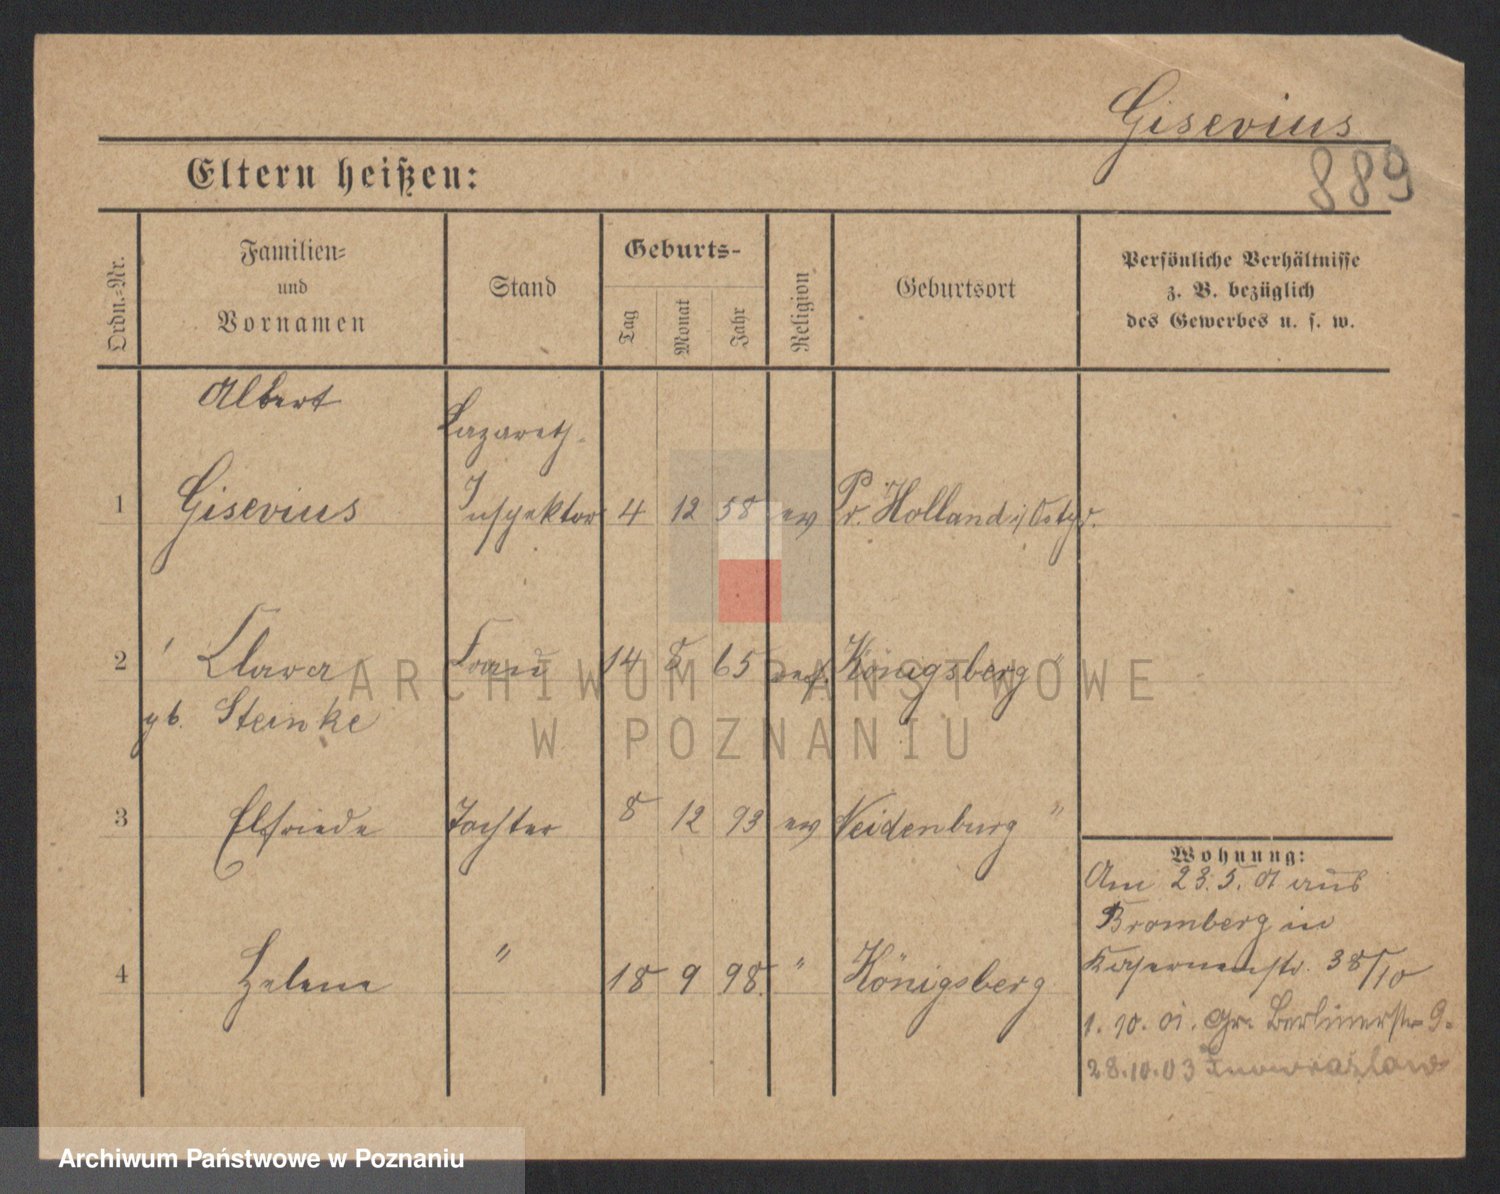 Gisevius
889
Eltern heißen:
Ordn.-Nr.
Familien-
und
Vornamen
Stand
Geburts-
Tag
Monat
Jahr
Religion
Geburtsort
Persönliche Verhältnisse
z. B. bezüglich
des Gewerbes u. s. w.
Albert
Lazareth-
1 Gisevius Inspektor 4 12 58 ev Pr. Holland i/Ostpr.
2 Clara Frau 14 8 65 ref. Königsberg "
gb. Steinke
3 Elfriede Tochter 8 12 93 ev Neidenburg "
4 Helene " 18 9 98. " Königsberg
Wohnung:
Am 23.5.01 aus
Bromberg in
Kasernenstr. 38/10
1.10.01. Gr. Berlinerstr 9.
28.10.03 Inowrazlaw
ARCHIWUM PAŃSTWOWE
W POZNANIU
Archiwum Państwowe w Poznaniu